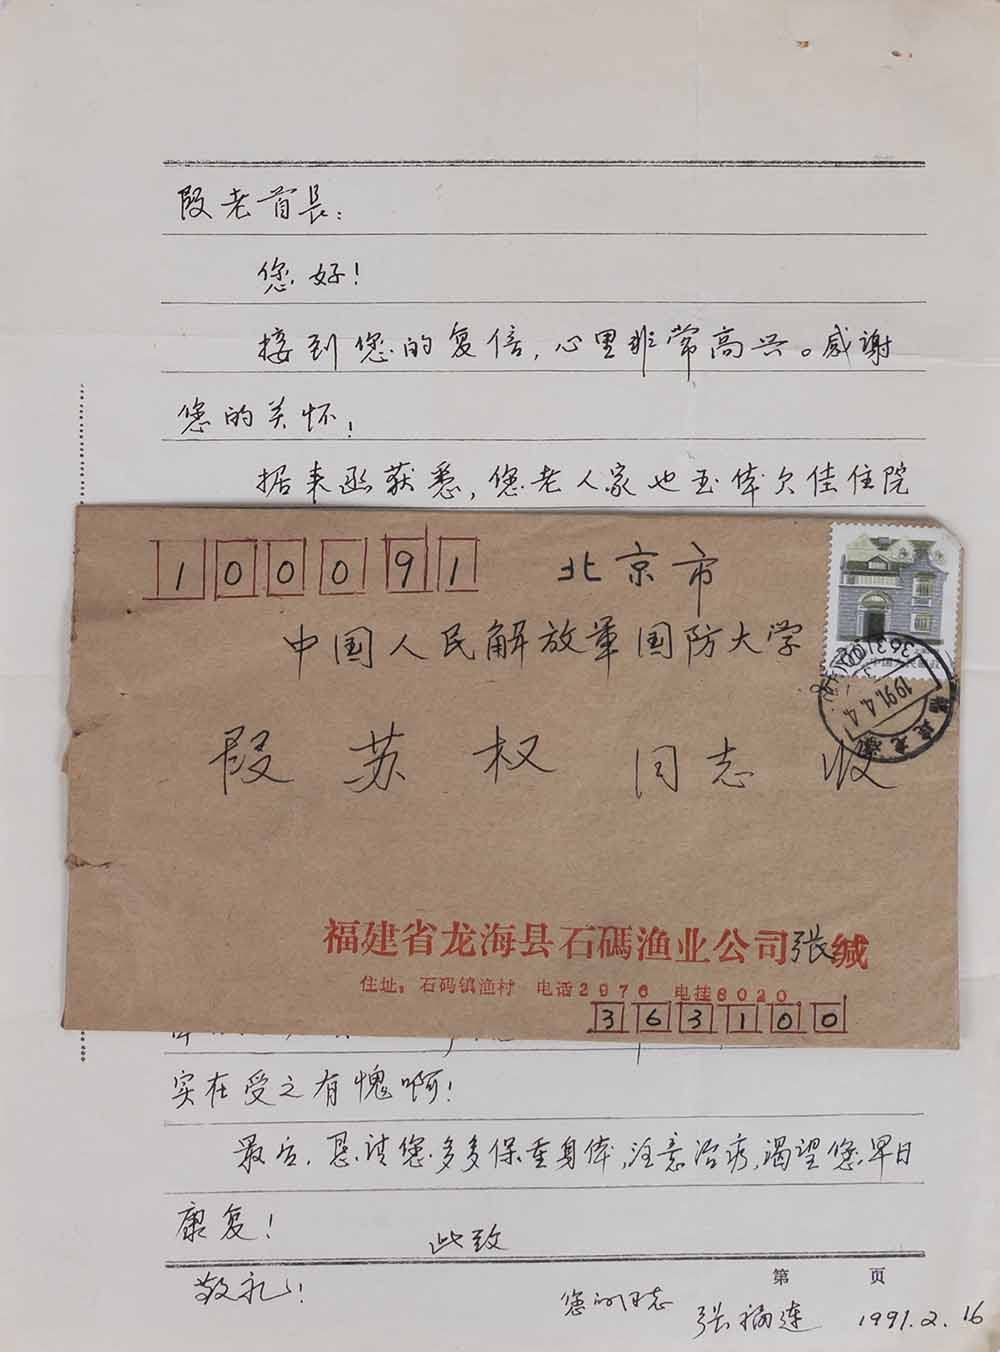 段老首长：
您好！
接到您的复信，心里非常高兴。感谢
您的关怀！
据来函获悉，您老人家也玉体欠佳住院
100091
北京市
中国人民解放军国防大学
段苏权 同志 收
1991.4.4
福建省龙海县石碼渔业公司张缄
住址：石码镇渔村 电话2976 电挂8020
363100
实在受之有愧啊！
最后，恳请您多多保重身体，注意治疗，渴望您早日
康复！
此致
敬礼！
第 页
您的同志
张福连 1991.2.16